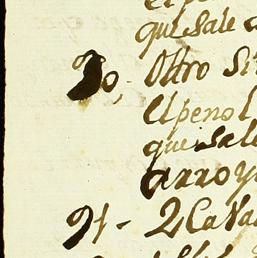 que sale
90, Ottro Si
El peno l
que sale
arroy
91 - 2 Cava